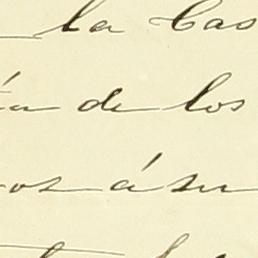 la Cas
de los
os á su